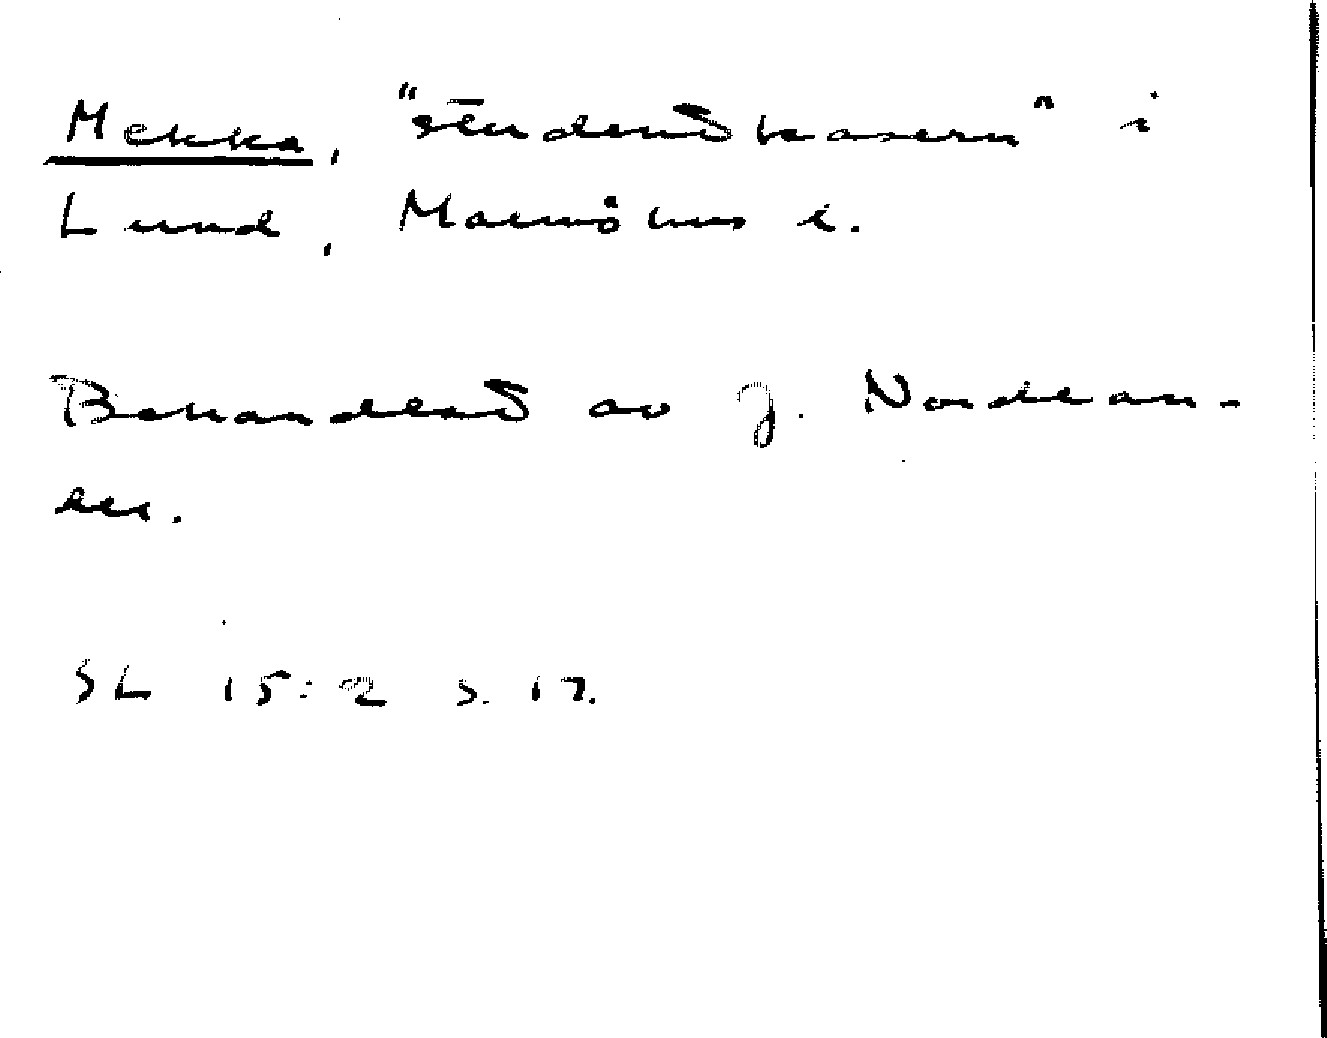 Mekka, "studentkasern" i
Lund, Malmöhus l.
Behandlat av J. Nordlan-
der.
SL 15:2 s. 17.